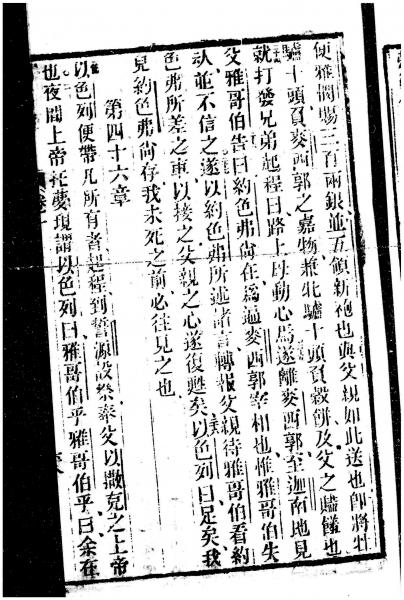 便雅憫賜三百兩銀並五領新袍也與父親如此送也即將牡
驢十頭負麥西郭之嘉物兼北驢十頭負穀餅及父之饎饈也
就打發兄弟起程曰路上毋動心焉遂離麥西郭至迦南地見
父雅哥伯告曰約色弗尚在為通麥西郭宰相也惟雅哥伯失
心並不信之遂以約色弗所述諸言轉報父親待雅哥伯看約
色弗所差之車以接之父親之心遂復甦矣以色列曰足矣我
見約色弗尚存我未死之前必往見之也
第四十六章
以色列便帶凡所有者起程到誓源設祭奉父以撒克之上帝
也夜間上帝托夢現謂以色列曰雅哥伯乎雅哥伯乎曰余在